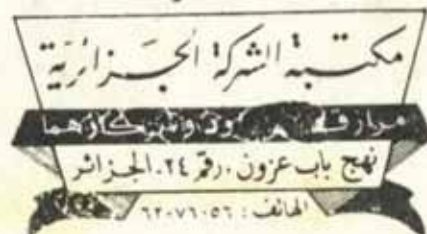 مكتبة الشركة الجزائرية
مرازقه وشركاؤهما
نهج باب عزون ، رقم ٢٤ - الجزائر
الهاتف : ٥٦-٠٧-٦٢